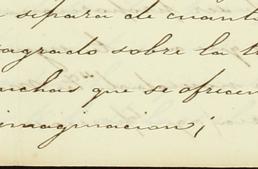 separa de cuanto
sagrado sobre la
muchas que se ofrecen
imaginacion;